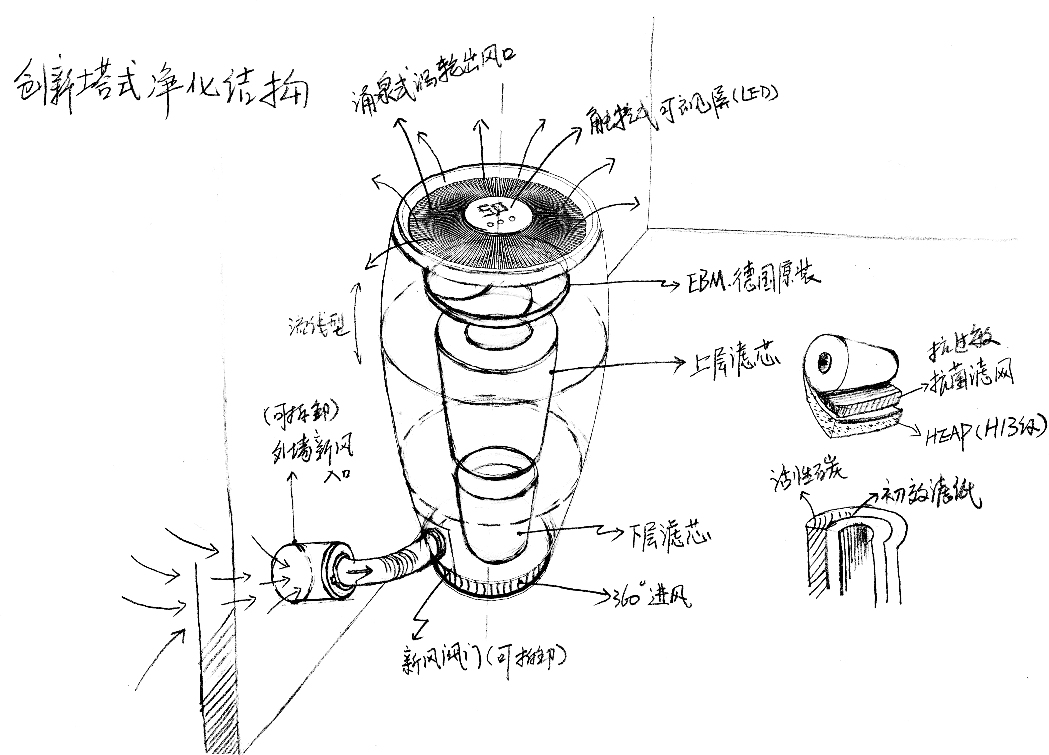 创新塔式净化结构
涌泉式涡轮出风口
触控式可视屏(LED)
50
EBM.德国原装
流线型
上层滤芯
抗过敏
抗菌滤网
HEAP(H13级)
(可拆卸)
外墙新风
入口
活性碳
初效滤纸
下层滤芯
360°进风
新风阀门(可拆卸)